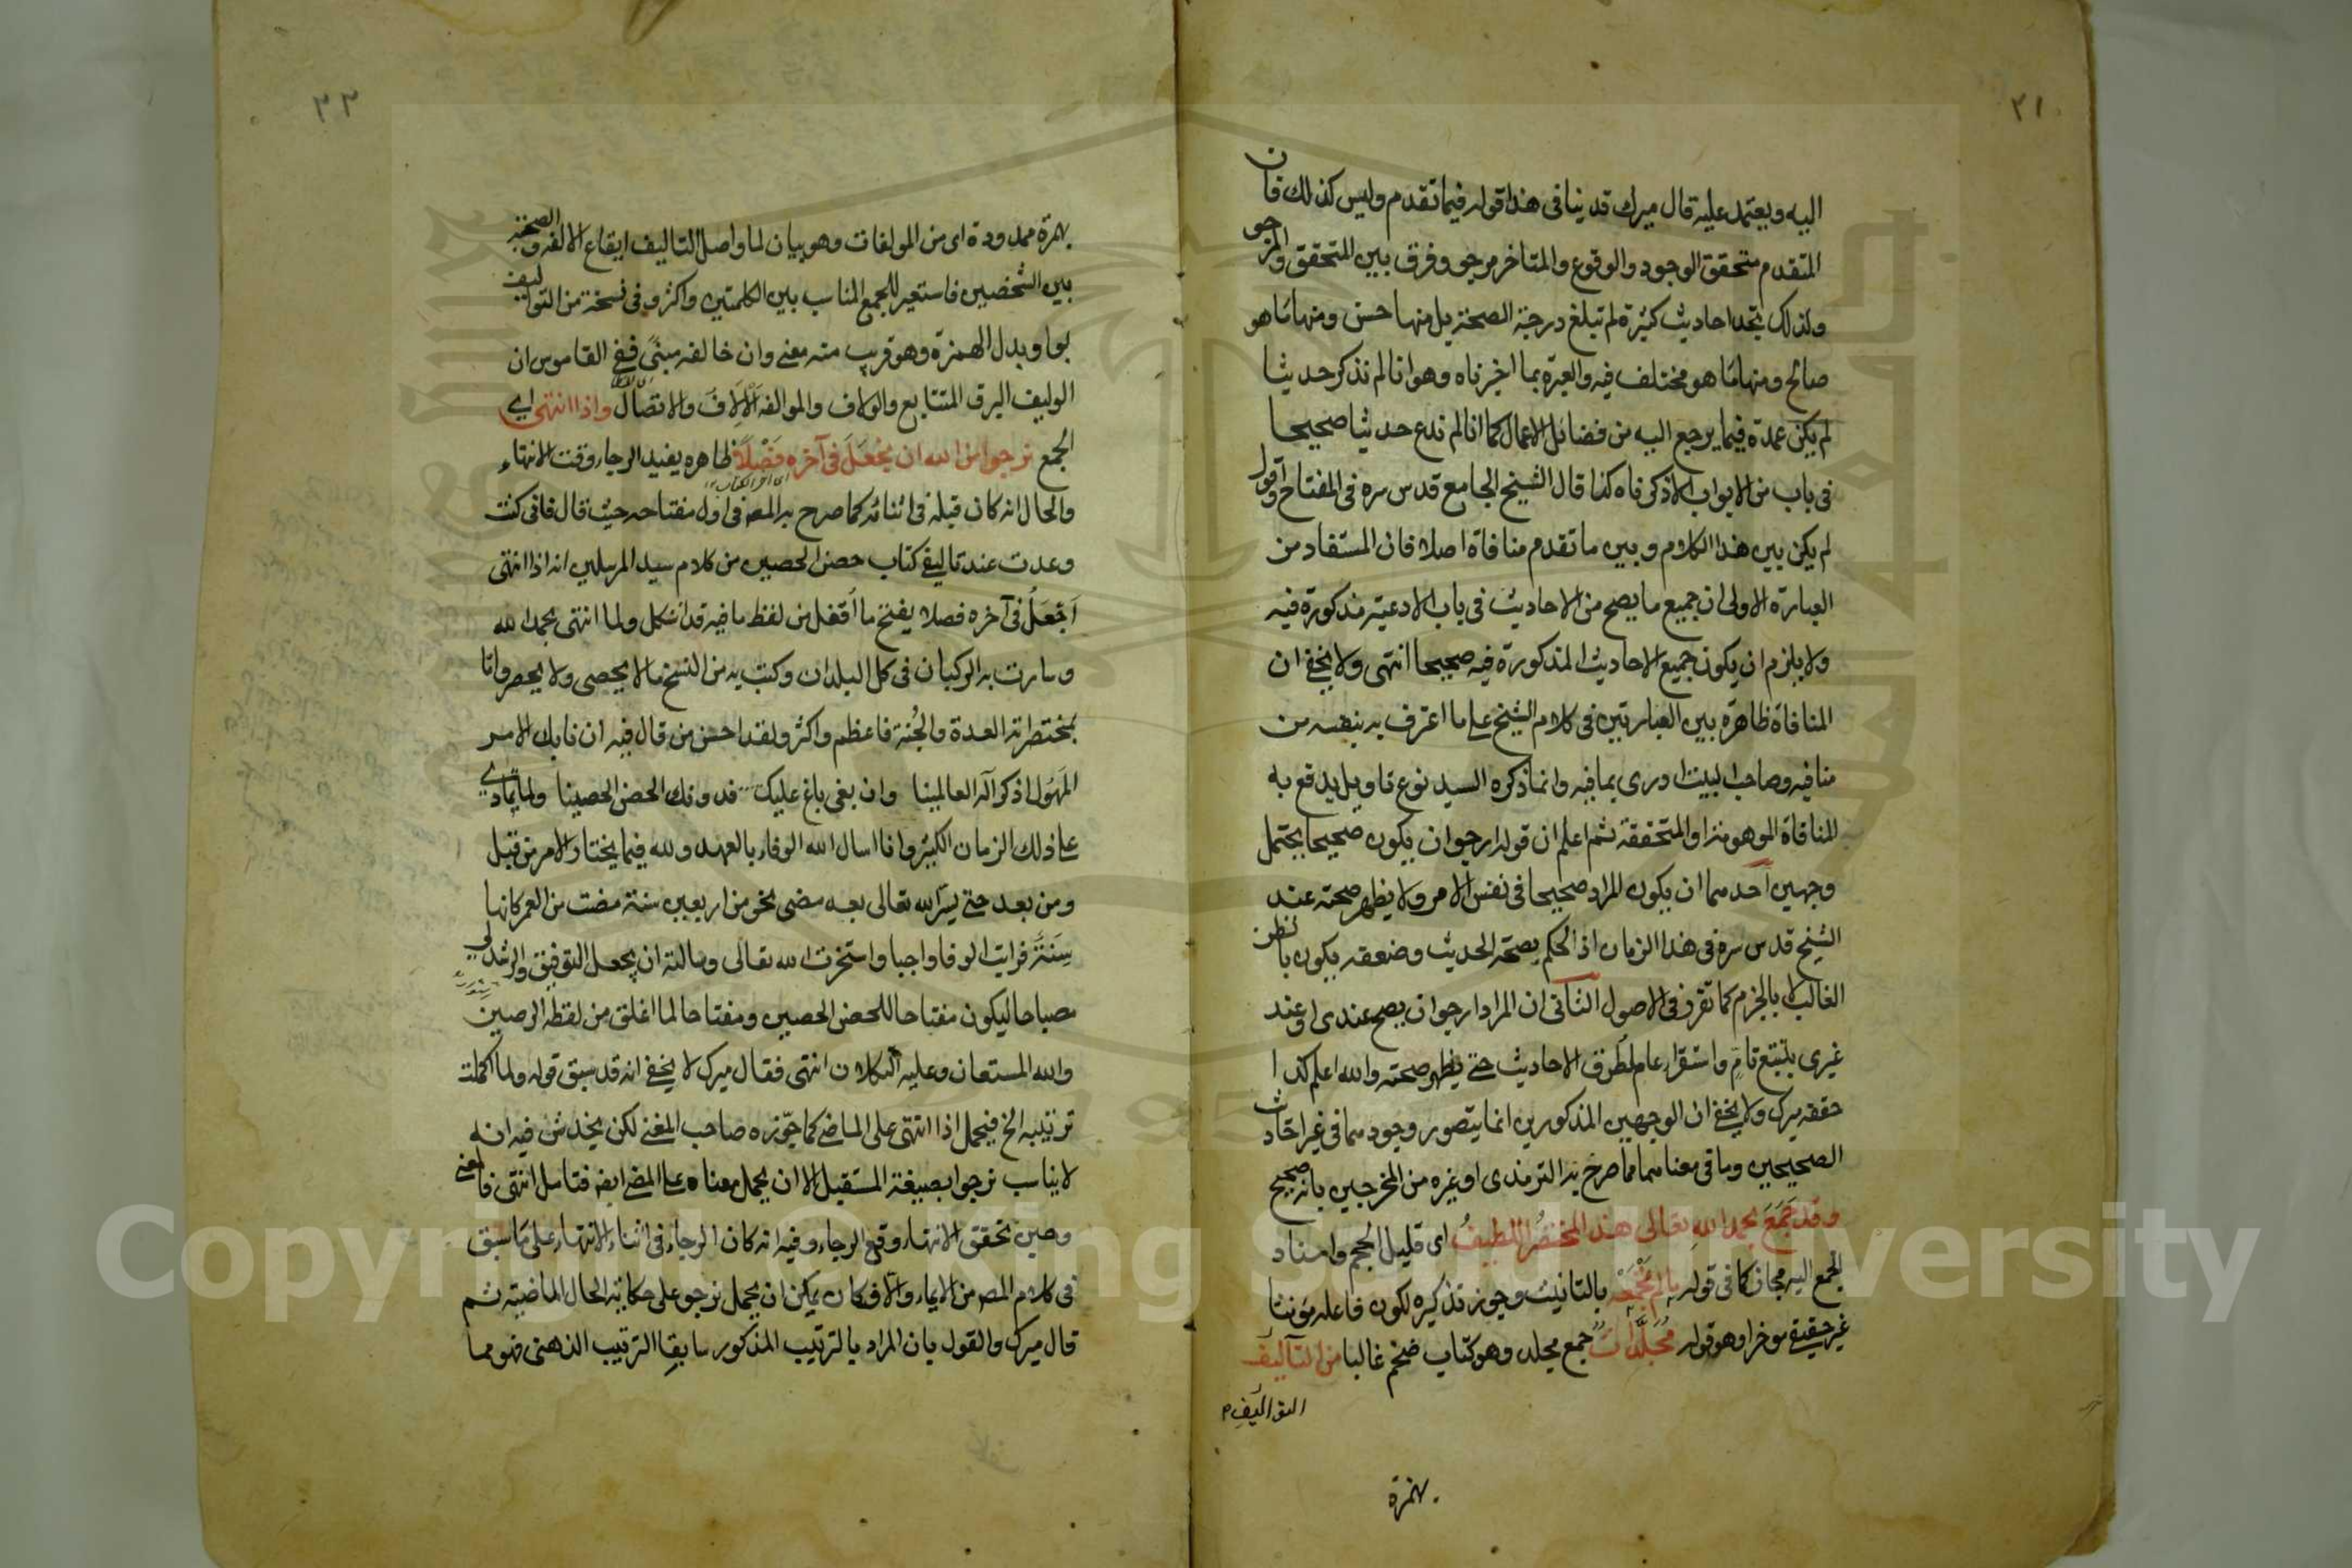 ٢١
اليه ويعتمد عليه قال ميرك قد ينافى هذا قوله فيما تقدم وليس كذلك فان
المتقدم متحقق الوجود والوقوع والمتاخر مرجو وفرق بين المتحقق والمرجو
ولذلك تجد احاديث كثيرة لم تبلغ درجة الصحة بل منها حسن ومنها ما هو
صالح ومنها ما هو مختلف فيه والعبرة بما اخبرناه وهو انا لم نذكر حديثا
لم يكن عمدة فيما يرجع اليه من فضائل الاعمال كما انا لم ندع حديثا صحيحا
فى باب من الابواب الا ذكرناه كذا قال الشيخ الجامع قدس سره فى المفتاح اقول
لم يكن بين هذا الكلام وبين ما تقدم منافاة اصلا فان المستفاد من
العبارة الاولى ان جميع ما يصح من الاحاديث فى باب الادعية مذكورة فيه
ولا يلزم ان يكون جميع الاحاديث المذكورة فيه صحيحا انتهى ولا يخفى ان
المنافاة ظاهرة بين العبارتين فى كلام الشيخ على ما اعترف به بنفسه من
منافيه وصاحب البيت ادرى بما فيه وانما ذكره السيد نوع تاويل يدفع به
المنافاة الموهومة او المتحققة ثم اعلم ان قوله ارجو ان يكون صحيحا يحتمل
وجهين احدهما ان يكون المراد صحيحا فى نفس الامر ولا يظهر صحته عند
الشيخ قدس سره فى هذا الزمان اذ الحكم بصحة الحديث وضعفه يكون بالظن
الغالب لا بالجزم كما تقرر فى الاصول الثانى ان المراد ارجو ان يصح عندى او عند
غيرى بتتبع تام واستقراء عام لطرق الاحاديث حتى يظهر صحته والله اعلم كذا
حققه ميرك ولا يخفى ان الوجهين المذكورين انما يتصور وجودهما فى غير احاديث
الصحيحين وما فى معناهما مما صرح به الترمذى او غيره من المخرجين بانه صحيح
وقد جمع بحمد الله تعالى هذا المختصر اللطيف اى قليل الحجم واسناد
الجمع اليه مجاز كما فى قوله ما لم تجمعه بالتانيث وجوز تذكيره لكون فاعله مؤنثا
غير حقيقى مؤخرا وهو قوله مجلدات جمع مجلد وهو كتاب ضخم غالبا من التآليف
التواليف
بهمزة
٢٢
بهمزة ممدودة اى من المولفات وهو بيان لما واصل التاليف ايقاع الالفة والصحبة
بين الشخصين فاستعير للجمع المناسب بين الكلمتين واكثر وفى نسخة من التواليف
بواو بدل الهمزة وهو قريب منه معنى وان خالفه مبنى ففى القاموس ان
الوليف البرق المتتابع والولاف والموالفة الالاف والاتصال واذا انتهى اى
الجمع نرجو من الله ان يجعل فى آخره فصلا ظاهره يفيد الرجاء وقت الانتهاء
اى آخر الكتاب
والحال انه كان قبله فى اثنائه كما صرح به المص فى اول مفتاحه حيث قال فانى كنت
وعدت عند تاليف كتاب حصن الحصين من كلام سيد المرسلين انه اذا انتهى
اجعل فى آخره فصلا يفتح ما اقفل من لفظ ما فيه قد اشكل ولما انتهى بحمد الله
وسارت به الركبان فى كل البلدان وكتب به من النسخ ما لا يحصى ولا يحصر واتا
بمختصراته العدة والجنة فاعظم واكثر ولقد احسن من قال فيه ان نابك الامر
المهول اذكر آله العالمينا وان بغى باغ عليك فدونك الحصن الحصينا ولما تمادى
على ذلك الزمان الكبير وانا اسال الله الوفاء بالعهد ولله فيما يختار الامر من قبل
ومن بعد حتى يسر الله تعالى بعد مضى نحو من اربعين سنة مضت من العمر كانها
سنة فرايت الوفا واجبا واستخرت الله تعالى وسالته ان يجعل التوفيق والرشد لى
مصباحا ليكون مفتاحا للحصن الحصين ومفتاحا لما اغلق من لفظه الرصين
والله المستعان وعليه التكلان انتهى فقال ميرك لا يخفى انه قد سبق قوله ولما اكملت
ترتيبه الخ فيحمل اذا انتهى على الماضى كما جوزه صاحب المغنى لكن يخدش فيه انه
لا يناسب نرجو بصيغة المستقبل الا ان يحمل معناه على المضى ايضا فتامل انتهى فالمعنى
وحين تحقق الانتهاء وقع الرجاء وفيه انه كان الرجاء فى اثناء الانتهاء على ما سبق
فى كلام المص من الايماء والا فكان يمكن ان يحمل نرجو على حكاية الحال الماضية ثم
قال ميرك والقول بان المراد بالترتيب المذكور سابقا الترتيب الذهنى فهو مما
Copyright © King Saud University